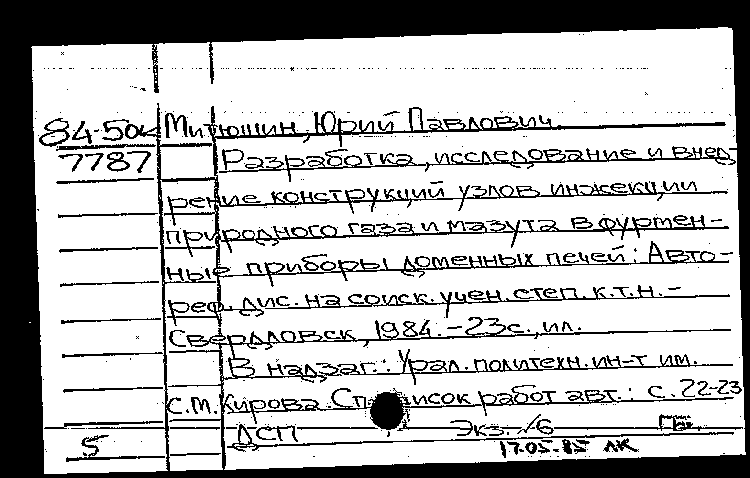 84-50к Митюшин, Юрий Павлович.
7787 Разработка, исследование и внед-
рение конструкций узлов инжекции
природного газа и мазута в фурмен-
ные приборы доменных печей: Авто-
реф. дис. на соиск. учен. степ. к.т.н. -
Свердловск, 1984. - 23с., ил.
В надзаг.: Урал. политехн. ин-т им.
С.М. Кирова. Список работ авт.: с. 22-23
5 ДСП Экз. √6
17.05.85 ЛК